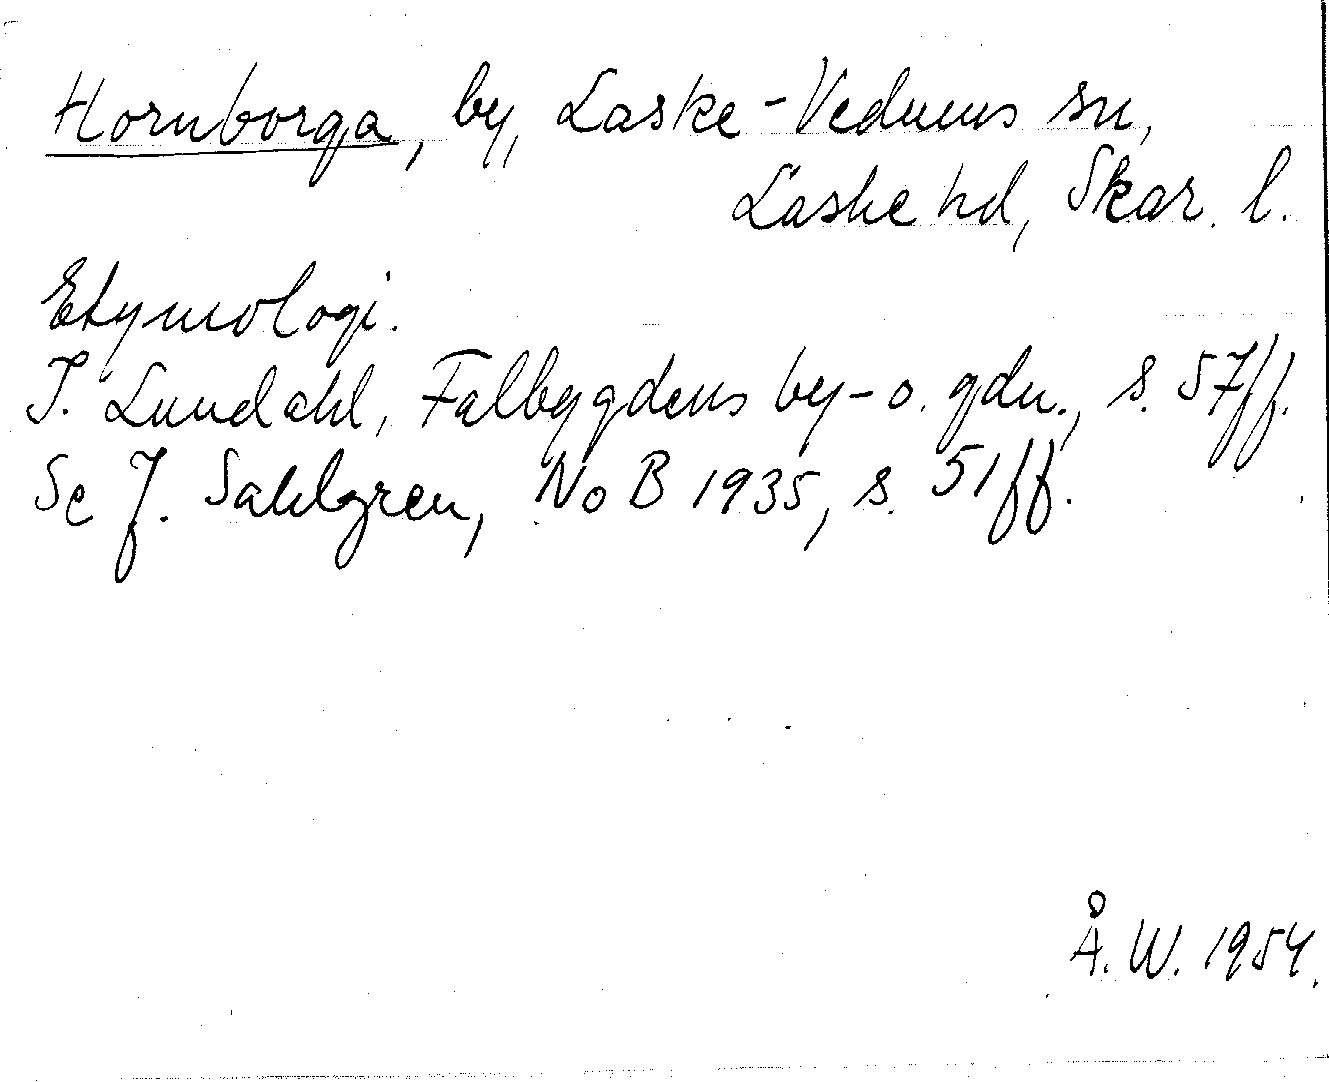 Hornborga, by, Laske-Vedums sn,
Laske hd, Skar. l.
Etymologi.
I. Lundahl, Falbygdens by- o. gdn., s. 57ff.
Se J. Sahlgren, NoB 1935, s. 51ff.
Å. W. 1954.